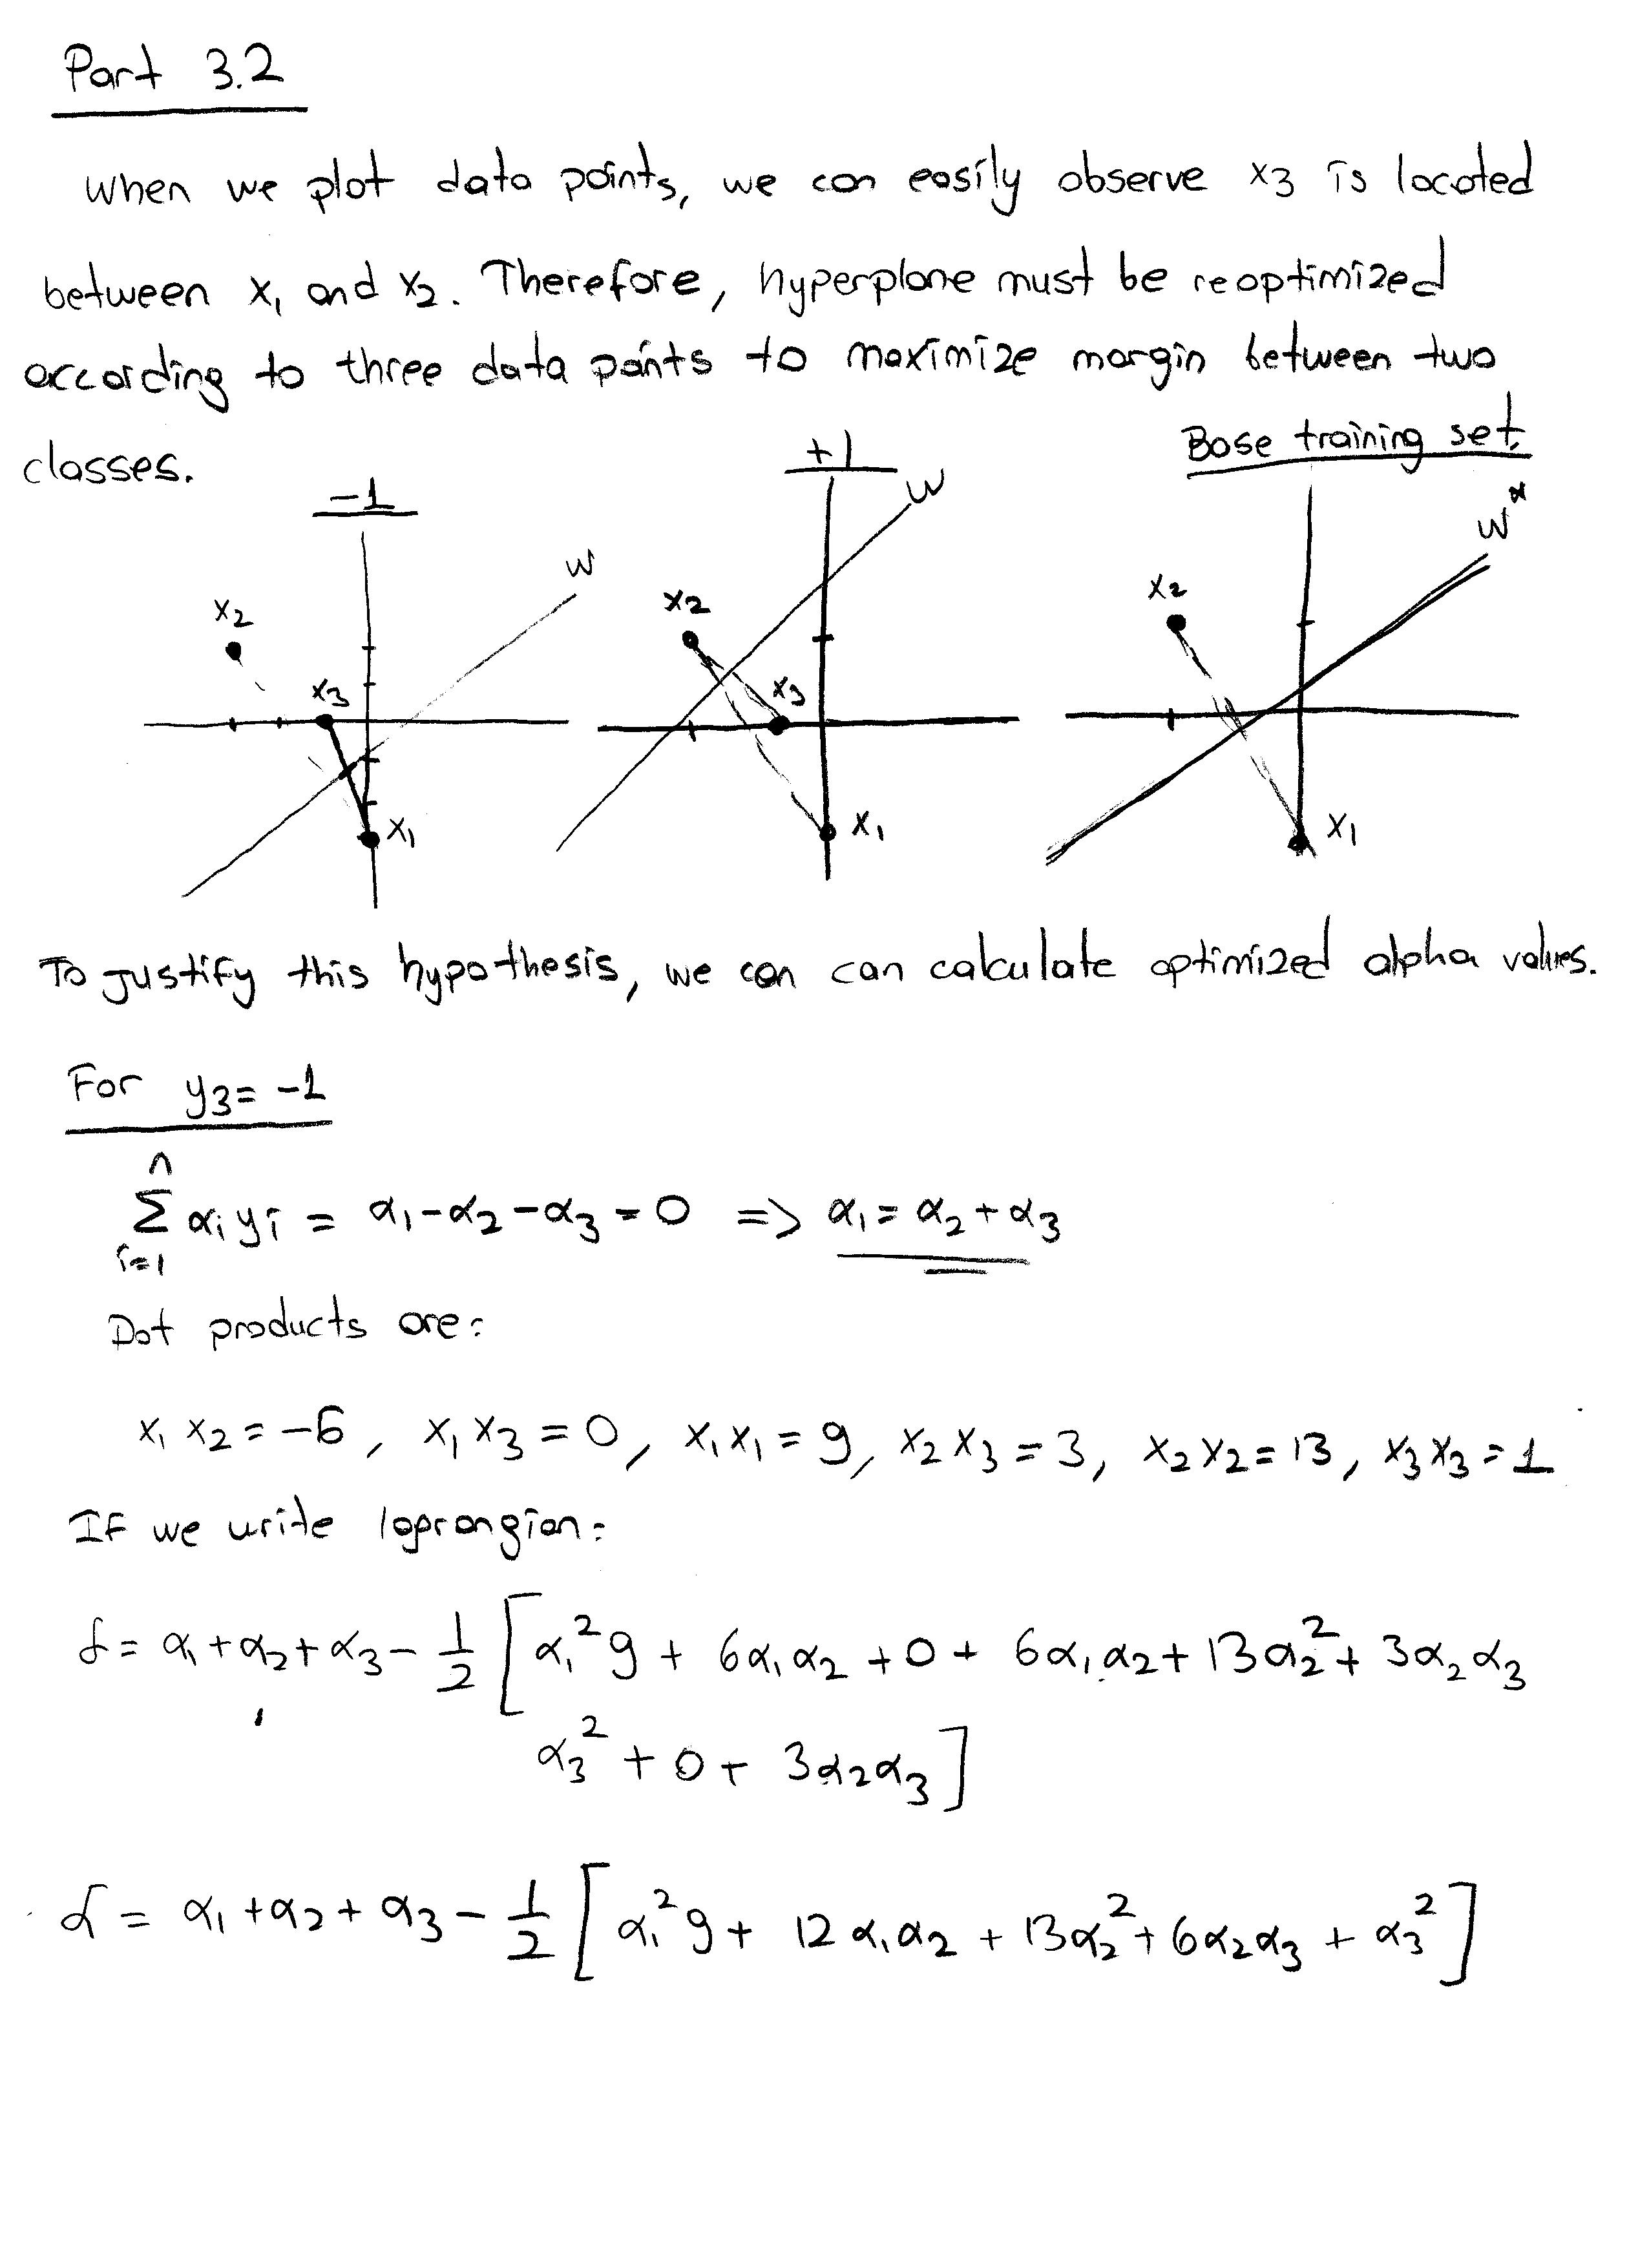 Part 3.2
when we plot data points, we can easily observe x3 is located
between x1 and x2. Therefore, hyperplane must be reoptimized
according to three data points to maximize margin between two
classes.
-1
+1
Base training set.
w
w
w*
x2
x2
x2
x3
x3
x1
x1
x1
To justify this hypothesis, we can can calculate optimized alpha values.
For y3 = -1
n
Σ αi yi = α1 - α2 - α3 = 0 => α1 = α2 + α3
i=1
Dot products are:
x1 x2 = -6, x1 x3 = 0, x1 x1 = 9, x2 x3 = 3, x2 x2 = 13, x3 x3 = 1
If we write lagrangian:
L = α1 + α2 + α3 - 1/2 [ α1² 9 + 6 α1 α2 + 0 + 6 α1 α2 + 13 α2² + 3 α2 α3
α3² + 0 + 3 α2 α3 ]
L = α1 + α2 + α3 - 1/2 [ α1² 9 + 12 α1 α2 + 13 α2² + 6 α2 α3 + α3² ]